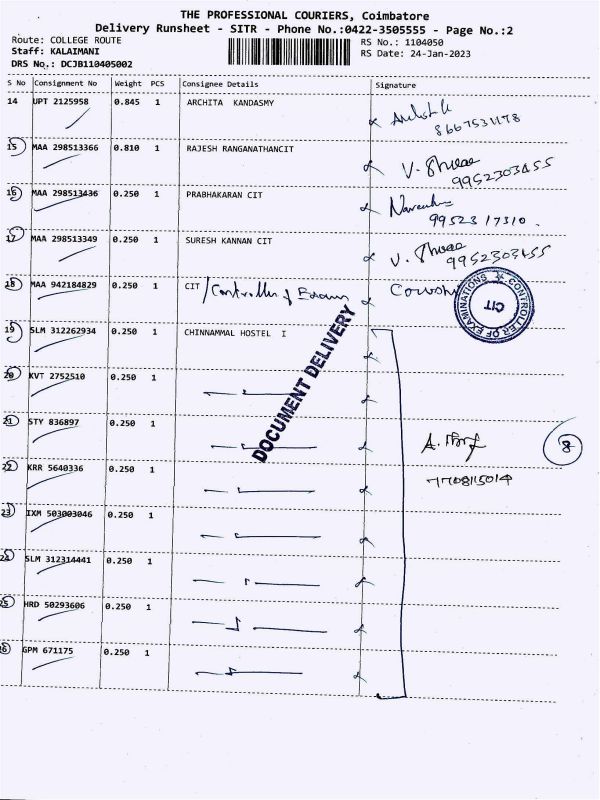 THE PROFESSIONAL COURIERS, Coimbatore
Delivery Runsheet - SITR - Phone No.:0422-3505555 - Page No.:2
Route: COLLEGE ROUTE
RS No.: 1104050
Staff: KALAIMANI
RS Date: 24-Jan-2023
DRS No.: DCJB110405002
S No Consignment No Weight PCS Consignee Details Signature
14 UPT 2125958 0.845 1 ARCHITA KANDASMY
8667531178
15 MAA 298513366 0.810 1 RAJESH RANGANATHANCIT
9952303455
16 MAA 298513436 0.250 1 PRABHAKARAN CIT
9952317310.
17 MAA 298513349 0.250 1 SURESH KANNAN CIT
9952303455
18 MAA 942184829 0.250 1 CIT / Controller of Exam
CONTROLLER OF EXAMINATIONS
CIT
19 SLM 312262934 0.250 1 CHINNAMMAL HOSTEL I
DOCUMENT DELIVERY
20 KVT 2752510 0.250 1
21 STY 836897 0.250 1
8
22 KRR 5640336 0.250 1
7708115014
23 IXM 503003046 0.250 1
24 SLM 312314441 0.250 1
25 HRD 50293606 0.250 1
26 GPM 671175 0.250 1